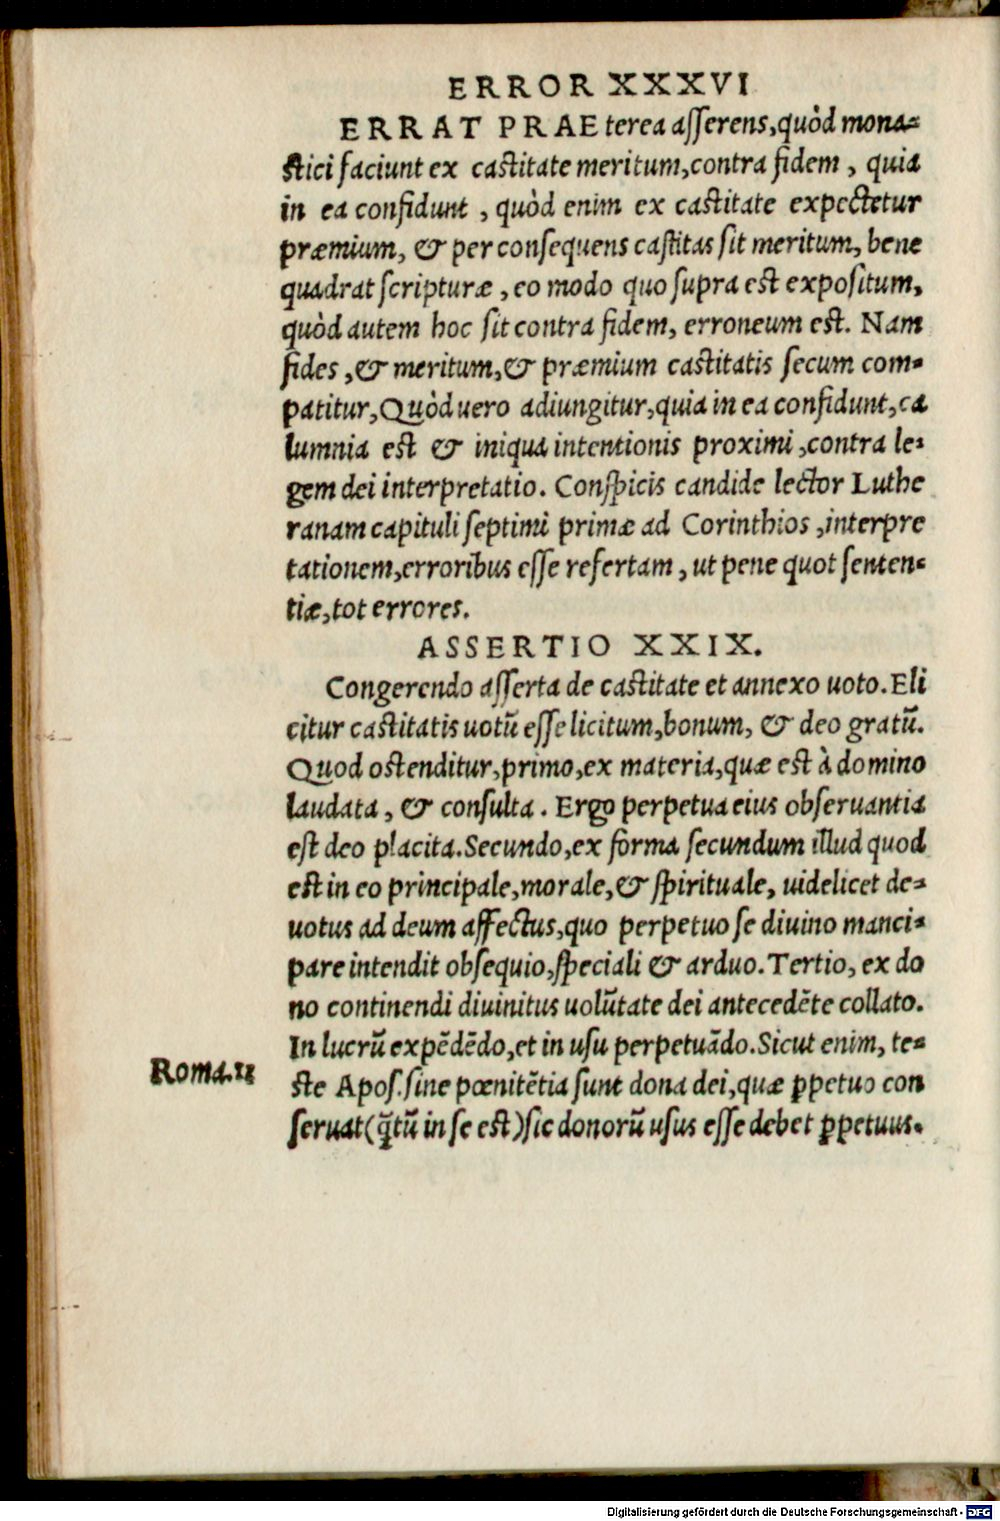 ERROR XXXVI
ERRAT PRAEterea asserens, quòd mona-
stici faciunt ex castitate meritum, contra fidem, quia
in ea confidunt, quòd enim ex castitate expectetur
præmium, & per consequens castitas sit meritum, bene
quadrat scripturæ, eo modo quo supra est expositum,
quòd autem hoc sit contra fidem, erroneum est. Nam
fides, & meritum, & præmium castitatis secum com-
patitur, Quòd uero adiungitur, quia in ea confidunt, ca
lumnia est & iniqua intentionis proximi, contra le-
gem dei interpretatio. Conspicis candide lector Luthe
ranam capituli septimi primæ ad Corinthios, interpre
tationem, erroribus esse refertam, ut pene quot senten-
tiæ, tot errores.
ASSERTIO XXIX.
Congerendo asserta de castitate et annexo uoto. Eli
citur castitatis uotū esse licitum, bonum, & deo gratū.
Quod ostenditur, primo, ex materia, quæ est à domino
laudata, & consulta. Ergo perpetua eius obseruantia
est deo placita. Secundo, ex forma secundum illud quod
est in eo principale, morale, & spirituale, uidelicet de-
uotus ad deum affectus, quo perpetuo se diuino manci-
pare intendit obsequio, speciali & arduo. Tertio, ex do
no continendi diuinitus uolūtate dei antecedēte collato.
In lucrū expēdēdo, et in usu perpetuādo. Sicut enim, te-
Roma.11
ste Apos. sine pœnitētia sunt dona dei, quæ ꝑpetuo con
seruat (q̄tū in se est) sic donorū usus esse debet ꝑpetuus.
Digitalisierung gefördert durch die Deutsche Forschungsgemeinschaft - DFG